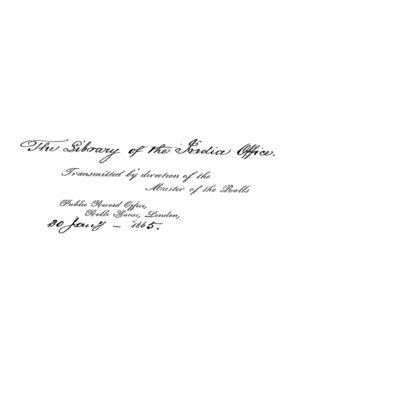 The Library of the India Office.
Transmitted by direction of the
Master of the Rolls
Public Record Office,
Rolls House, London,
30 Jany – 1865.